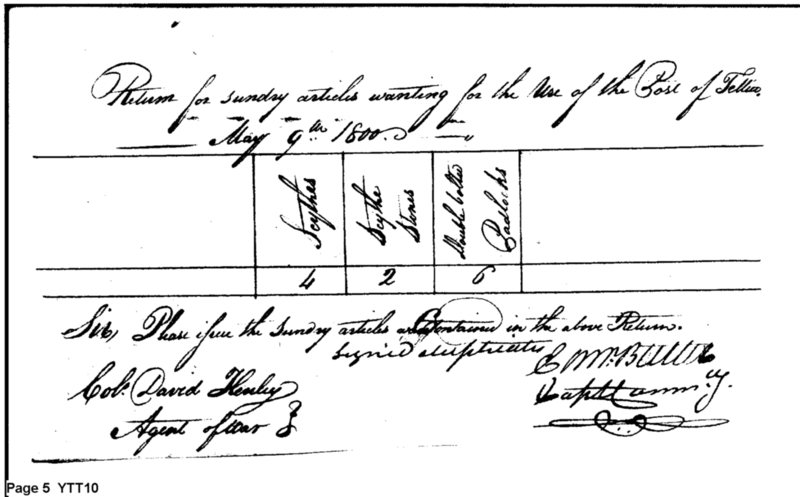 Return for Sundry articles wanting for the Use of the Post of Tellico
May 9th 1800
Scythes
Scythe Stones
Double bolted Padlocks
4 2 6
Sir, Please issue the Sundry articles Contained in the above Return.
Signed duplicates
Edwd. Butler
Capt. Comm.g.
Col. David Henley
Agent of War
Page 5 YTT10